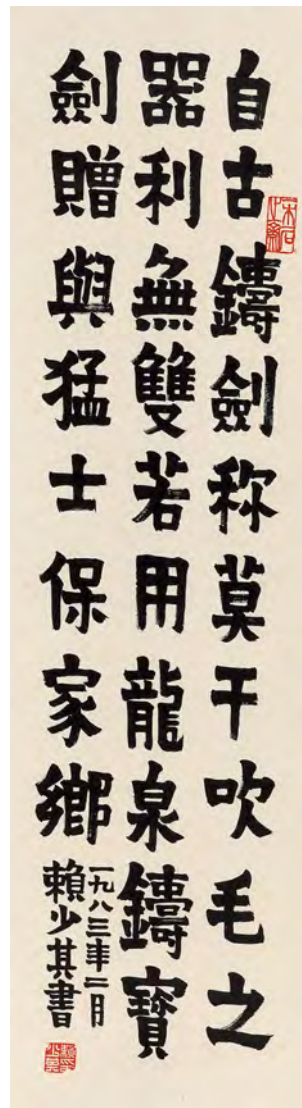 自古鑄劍称莫干吹毛之
器利無雙若用龍泉鑄寶
劍贈與猛士保家鄉
一九八三年二月
賴少其書